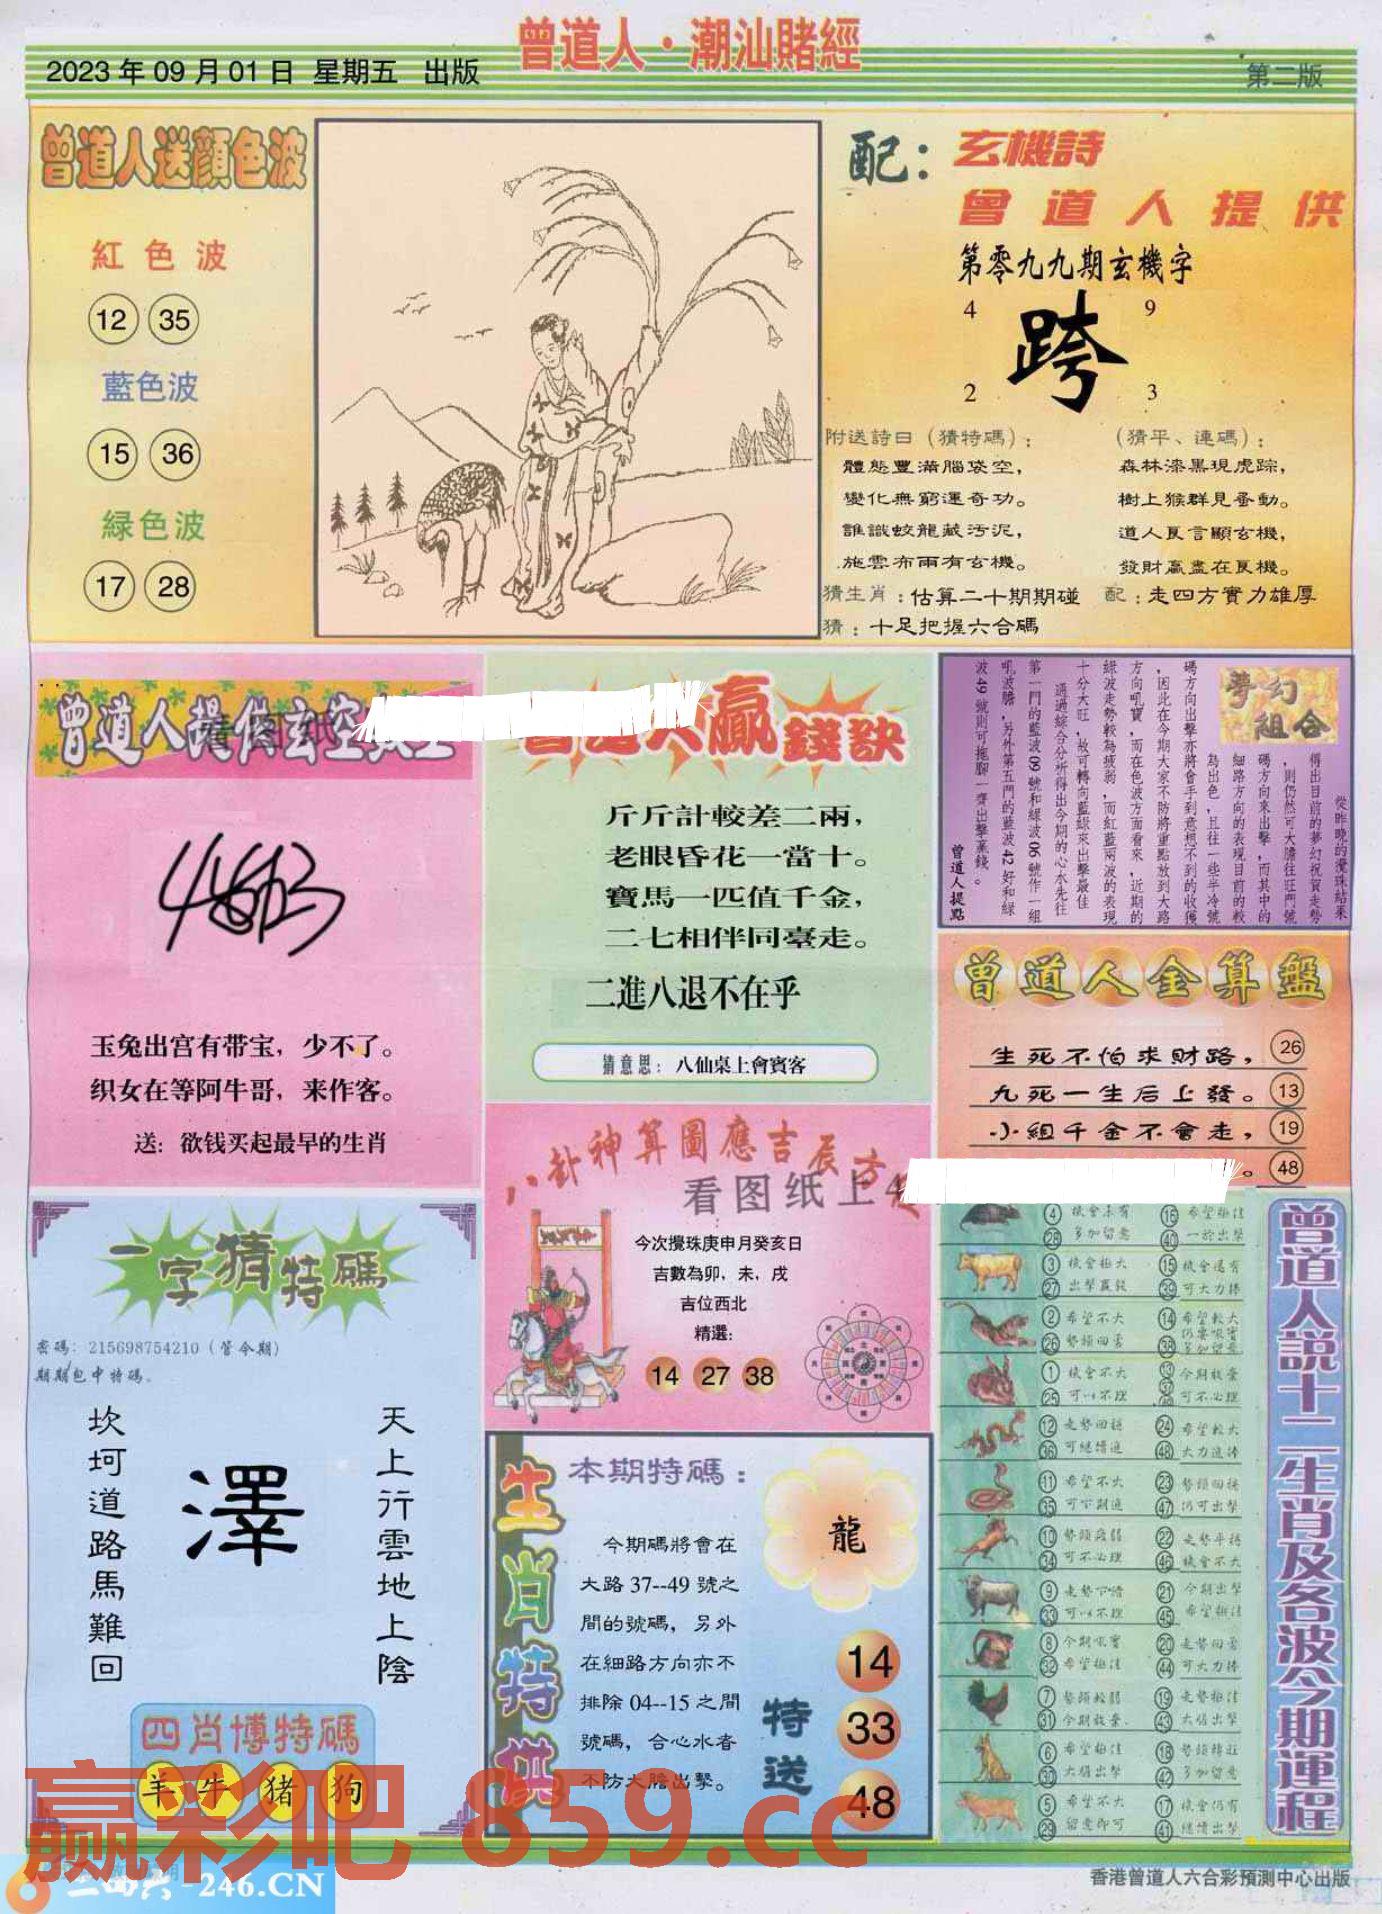 曾道人·潮汕賭經
2023年09月01日 星期五 出版
第二版
曾道人送顔色波
紅色波
12 35
藍色波
15 36
緑色波
17 28
配：玄機詩
曾道人提供
第零九九期玄機字
4 9
跨
2 3
附送詩曰（猜特碼）：
體態豐滿腦袋空，
變化無窮運奇功。
誰識蛟龍藏汚泥，
施雲布雨有玄機。
（猜平、連碼）：
森林漆黑現虎踪，
樹上猴群見蚤動。
道人良言顯玄機，
發財贏盡在良機。
猜生肖：估算二十期期碰
配：走四方實力雄厚
猜：十足把握六合碼
曾道人提供玄空
玉兔出宫有带宝，少不了。
织女在等阿牛哥，来作客。
送：欲钱买起最早的生肖
曾道人贏錢訣
斤斤計較差二兩，
老眼昏花一當十。
寶馬一匹值千金，
二七相伴同臺走。
二進八退不在乎
猜意思：八仙桌上會賓客
夢幻組合
從昨晚的攪珠結果
得出目前的夢幻祝賀走勢
，則仍然可大膽往旺門號
碼方向來出擊，而其中的
細路方向的表現目前的較
為出色，且往一些半冷號
碼方向出擊亦將會手到意想不到的收獲
，因此在今期大家不防將重點放到大路
方向吼寶，而在色波方面看來，近期的
綠波走勢較為疲弱，而紅藍兩波的表現
十分大旺，故可轉向藍綠來出擊最佳
通過綜合分析得出今期的心水先往
第一門的藍波09號和綠波06號作一組
吼波膽，另外第五門的藍波42好和綠
波49號則可拖腳一齊出擊贏錢。
曾道人提點
曾道人金算盤
生死不怕求財路， 26
九死一生后上發。 13
小組千金不會走， 19
。 48
八卦神算圖應吉辰方
看图纸上
今次攪珠庚申月癸亥日
吉數為卯，未，戌
吉位西北
精選：
14 27 38
一字猜特碼
密碼：215698754210（管今期）
期期包中特碼。
天上行雲地上陰
澤
坎坷道路馬難回
四肖博特碼
羊 牛 猪 狗
生肖特供
本期特碼：
龍
今期碼將會在
大路37--49號之
間的號碼，另外
在細路方向亦不
排除04--15之間
號碼，合心水者
不防大膽出擊。
特送
14
33
48
曾道人説十二生肖及各波今期運程
4 機會未有 16 希望極佳
28 多加留意 40 一於出擊
3 機會極大 15 機會還有
27 出擊贏錢 39 可大力捧
2 希望不大 14 希望較大
26 勢頭回落 38
1 機會不大 今期放棄
25 可以不理 可不必理
12 走勢回穩 24 希望較大
36 可繼續追 48 大力追捧
11 希望不大 23 勢頭回揚
35 可下期追 47 仍可出擊
10 勢頭疲弱 22 走勢平穩
34 可不必理 46 機會不大
9 走勢下滑 21 今期出擊
33 可以不理 45 希望極佳
8 今期吼寶 20 走勢回落
32 希望極佳 44 可大力捧
7 勢頭較弱 19 走勢極佳
31 今期放棄 43 大膽出擊
6 希望極佳 18 勢頭轉旺
30 大膽出擊 42 多加留意
5 希望不大 17 機會仍有
29 留意即可 41 繼續出擊
赢彩吧 859.cc
二四六-246.CN
香港曾道人六合彩預測中心出版